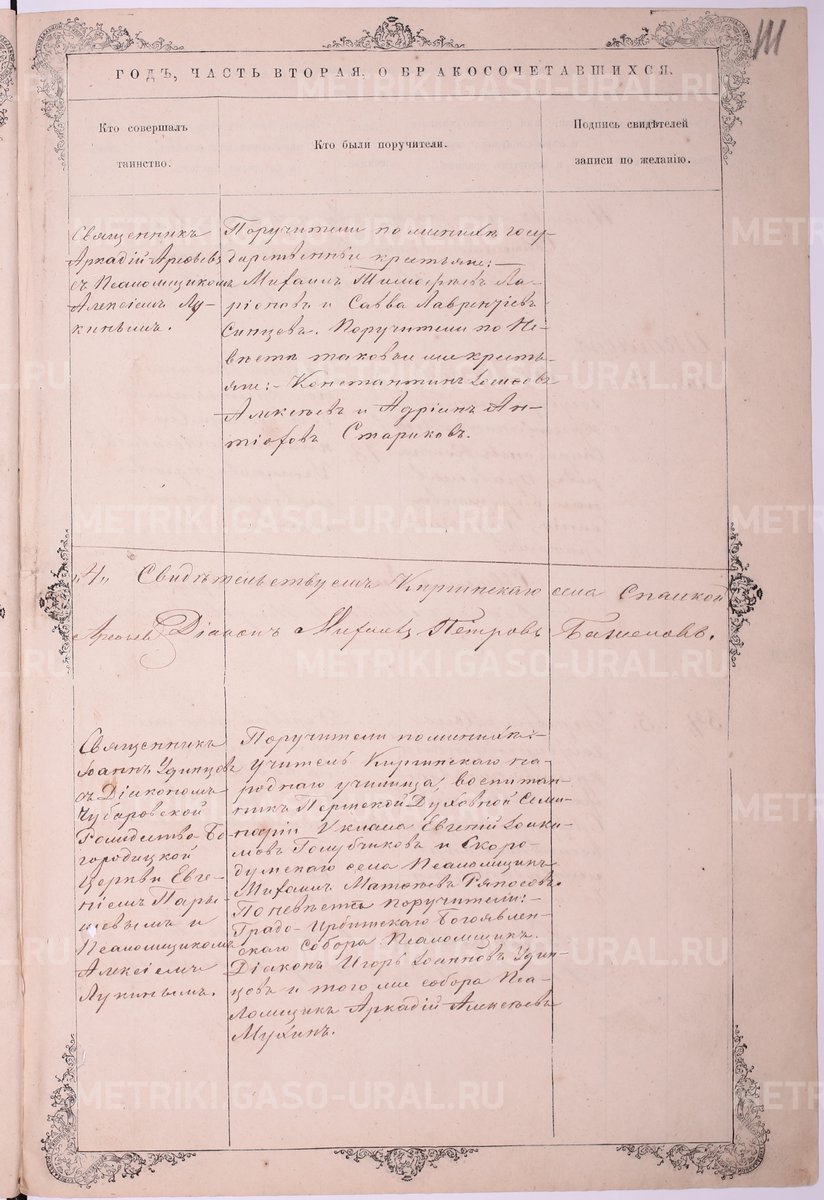 111
ГОДЪ, ЧАСТЬ ВТОРАЯ, О БРАКОСОЧЕТАВШИХСЯ.
Кто совершалъ
таинство.
Кто были поручители.
Подпись свидѣтелей
записи по желанію.
Священникъ
Аркадій Арефьевъ
съ Псаломщикомъ
Алексіемъ Лу-
кинымъ.
Поручители по женихѣ госу-
дарственные крестьяне:—
Михаилъ Тимофѣевъ Ла-
ріоновъ и Савва Лаврентіевъ
Синцовъ. Поручители по Не-
вѣстѣ таковые же кресть-
яне:- Константинъ
Алексѣевъ и Адріанъ Ан-
тіофовъ Стариковъ.
Свидѣтельствуемъ Киргинскаго села Спасской
Діаконъ Михаилъ Петровъ Баженовъ.
Священникъ
Іоаннъ Удинцовъ
съ Діакономъ
Чубаровской
Рождество-Бо-
городицкой
Церкви Евге-
ніемъ Пары-
шевымъ и
Псаломщикомъ
Алексіемъ
Лукинымъ.
Поручители по женихѣ:-
Учитель Киргинскаго на-
роднаго училища, воспитан-
никъ Пермской Духовной Семи-
наріи Евгеній Іоаки-
мовъ Голубчиковъ и Скоро-
думскаго села Псаломщикъ
Михаилъ Матѳеевъ Ряпосовъ.
По невѣстѣ поручители:-
Градо-Ирбитскаго Богоявлен-
скаго Собора Псаломщикъ
Діаконъ Игорь Іоанновъ Удин-
цовъ и того же собора Пса-
ломщикъ Аркадій Алексѣевъ
Мухинъ.
METRIKI.GASO-URAL.RU